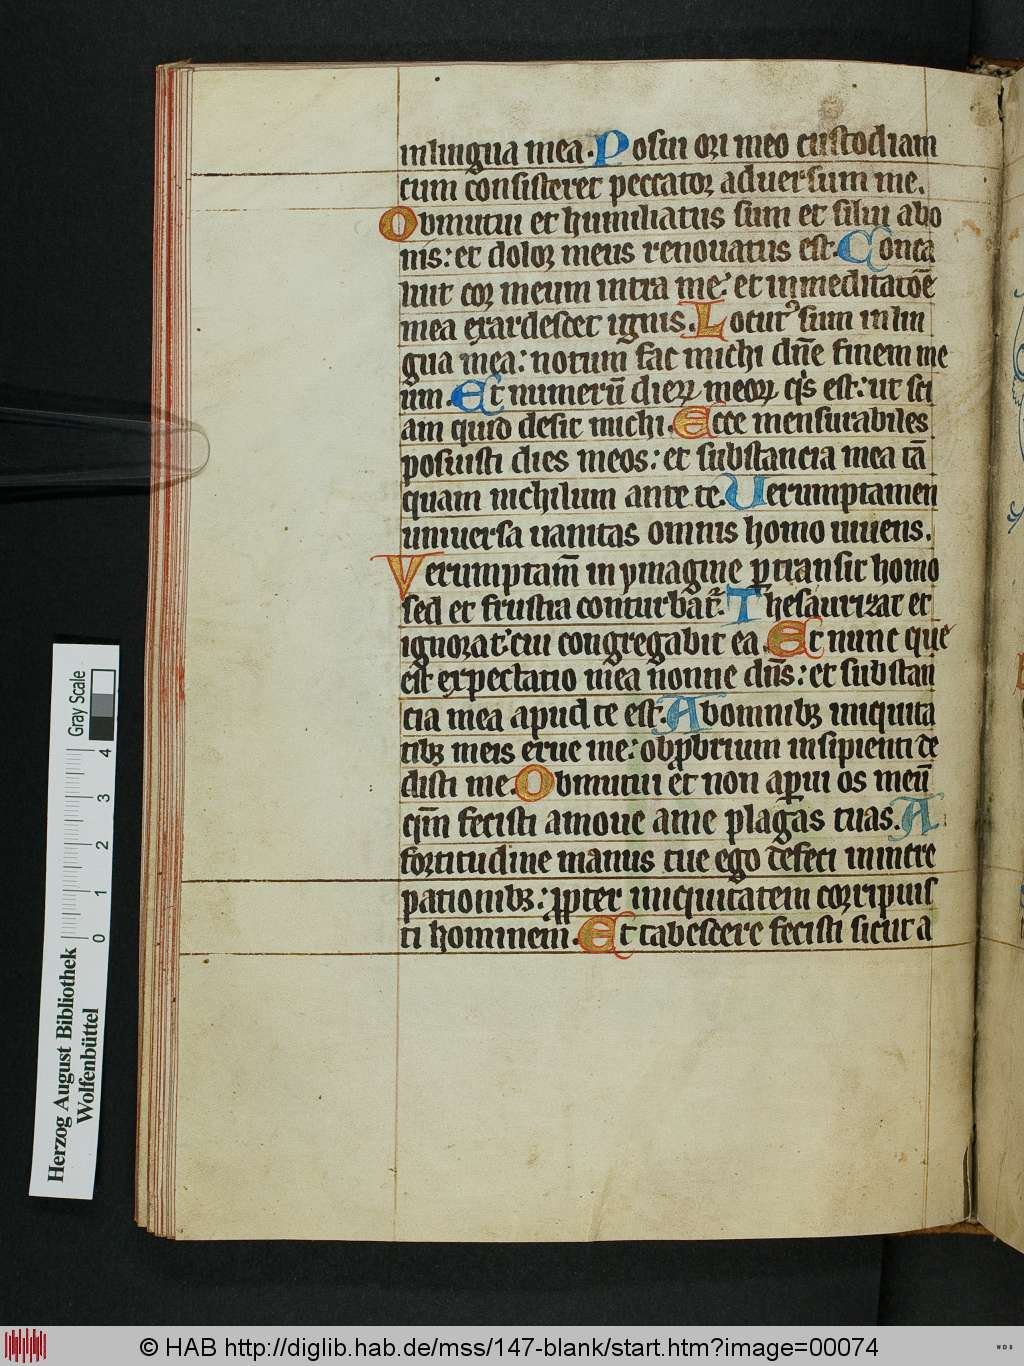 in lingua mea. Posui ori meo custodiam
cum consisteret peccator aduersum me.
Obmutui et humiliatus sum et silui abo
nis: et dolor meus renouatus est. Conca
luit cor meum intra me: et in meditatōe
mea exardescet ignis. Locutꝰ sum in lin
gua mea: notum fac michi dn̄e finem me
um. Et numerū dierꝝ meorꝝ qͥs est: ut sci
am quid desit michi. Ecce mensurabiles
posuisti dies meos: et substancia mea tā
quam nichilum ante te. Uerumptamen
uniuersa uanitas omnis homo uiuens.
Verumptam̄ in ymagine ꝑtransit homo
sed et frustra conturbat᷑. Thesaurizat et
ignorat: cui congregabit ea. Et nunc que
est expectatio mea nonne dn̄s: et substan
cia mea apud te est. Ab omnibꝫ iniquita
tibꝫ meis erue me: obꝓbrium insipienti de
disti me. Obmutui et non aꝑui os meū
qm̄ fecisti amoue a me plagas tuas. A
fortitudine manus tue ego defeci in incre
pationibꝫ: ꝓpter iniquitatem corripuis
ti hominem. Et tabescere fecisti sicut a
Herzog August Bibliothek
Wolfenbüttel
0 1 2 3 4
Gray Scale
© HAB http://diglib.hab.de/mss/147-blank/start.htm?image=00074